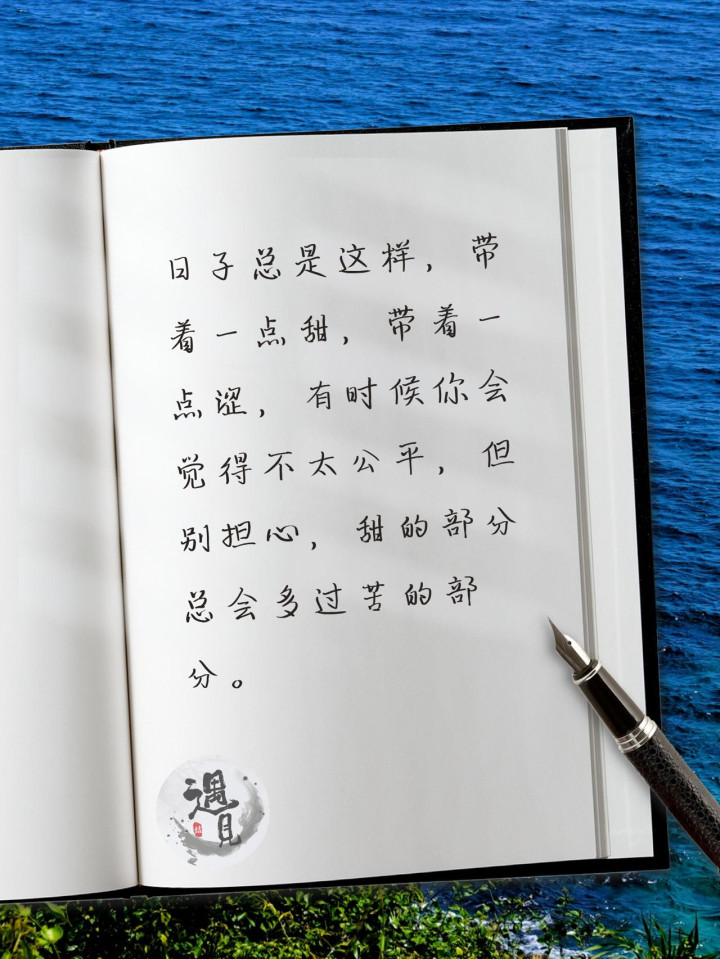 日子总是这样，带
着一点甜，带着一
点涩，有时候你会
觉得不太公平，但
别担心，甜的部分
总会多过苦的部
分。
遇
見